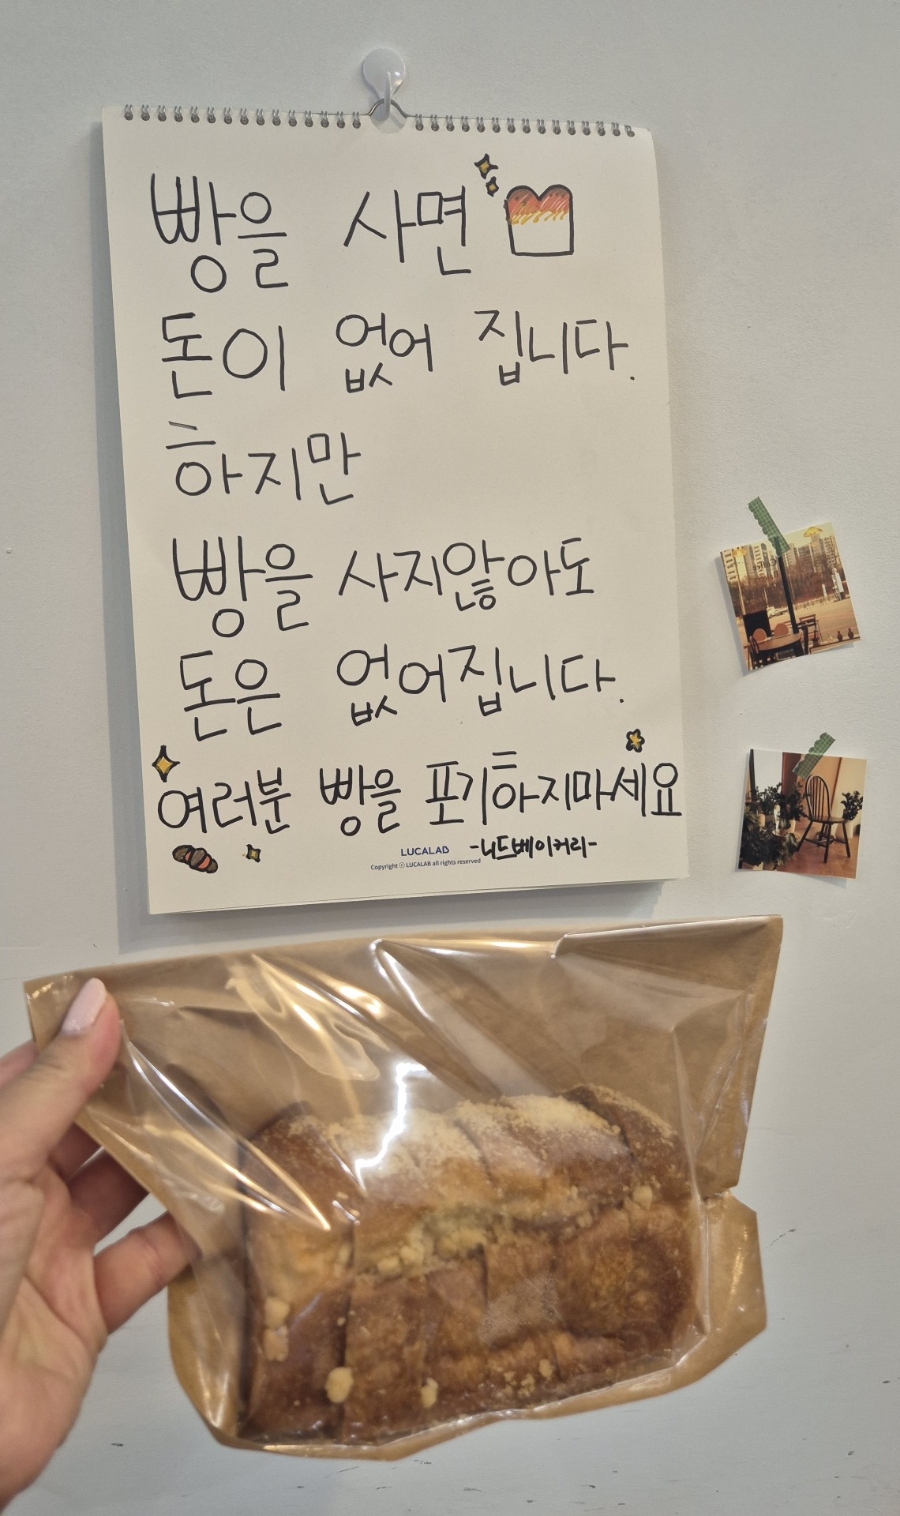 빵을 사면
돈이 없어 집니다.
하지만
빵을 사지않아도
돈은 없어집니다.
여러분 빵을 포기하지마세요
-니드베이커리-
LUCALAB
Copyright ⓒ LUCALAB all rights reserved